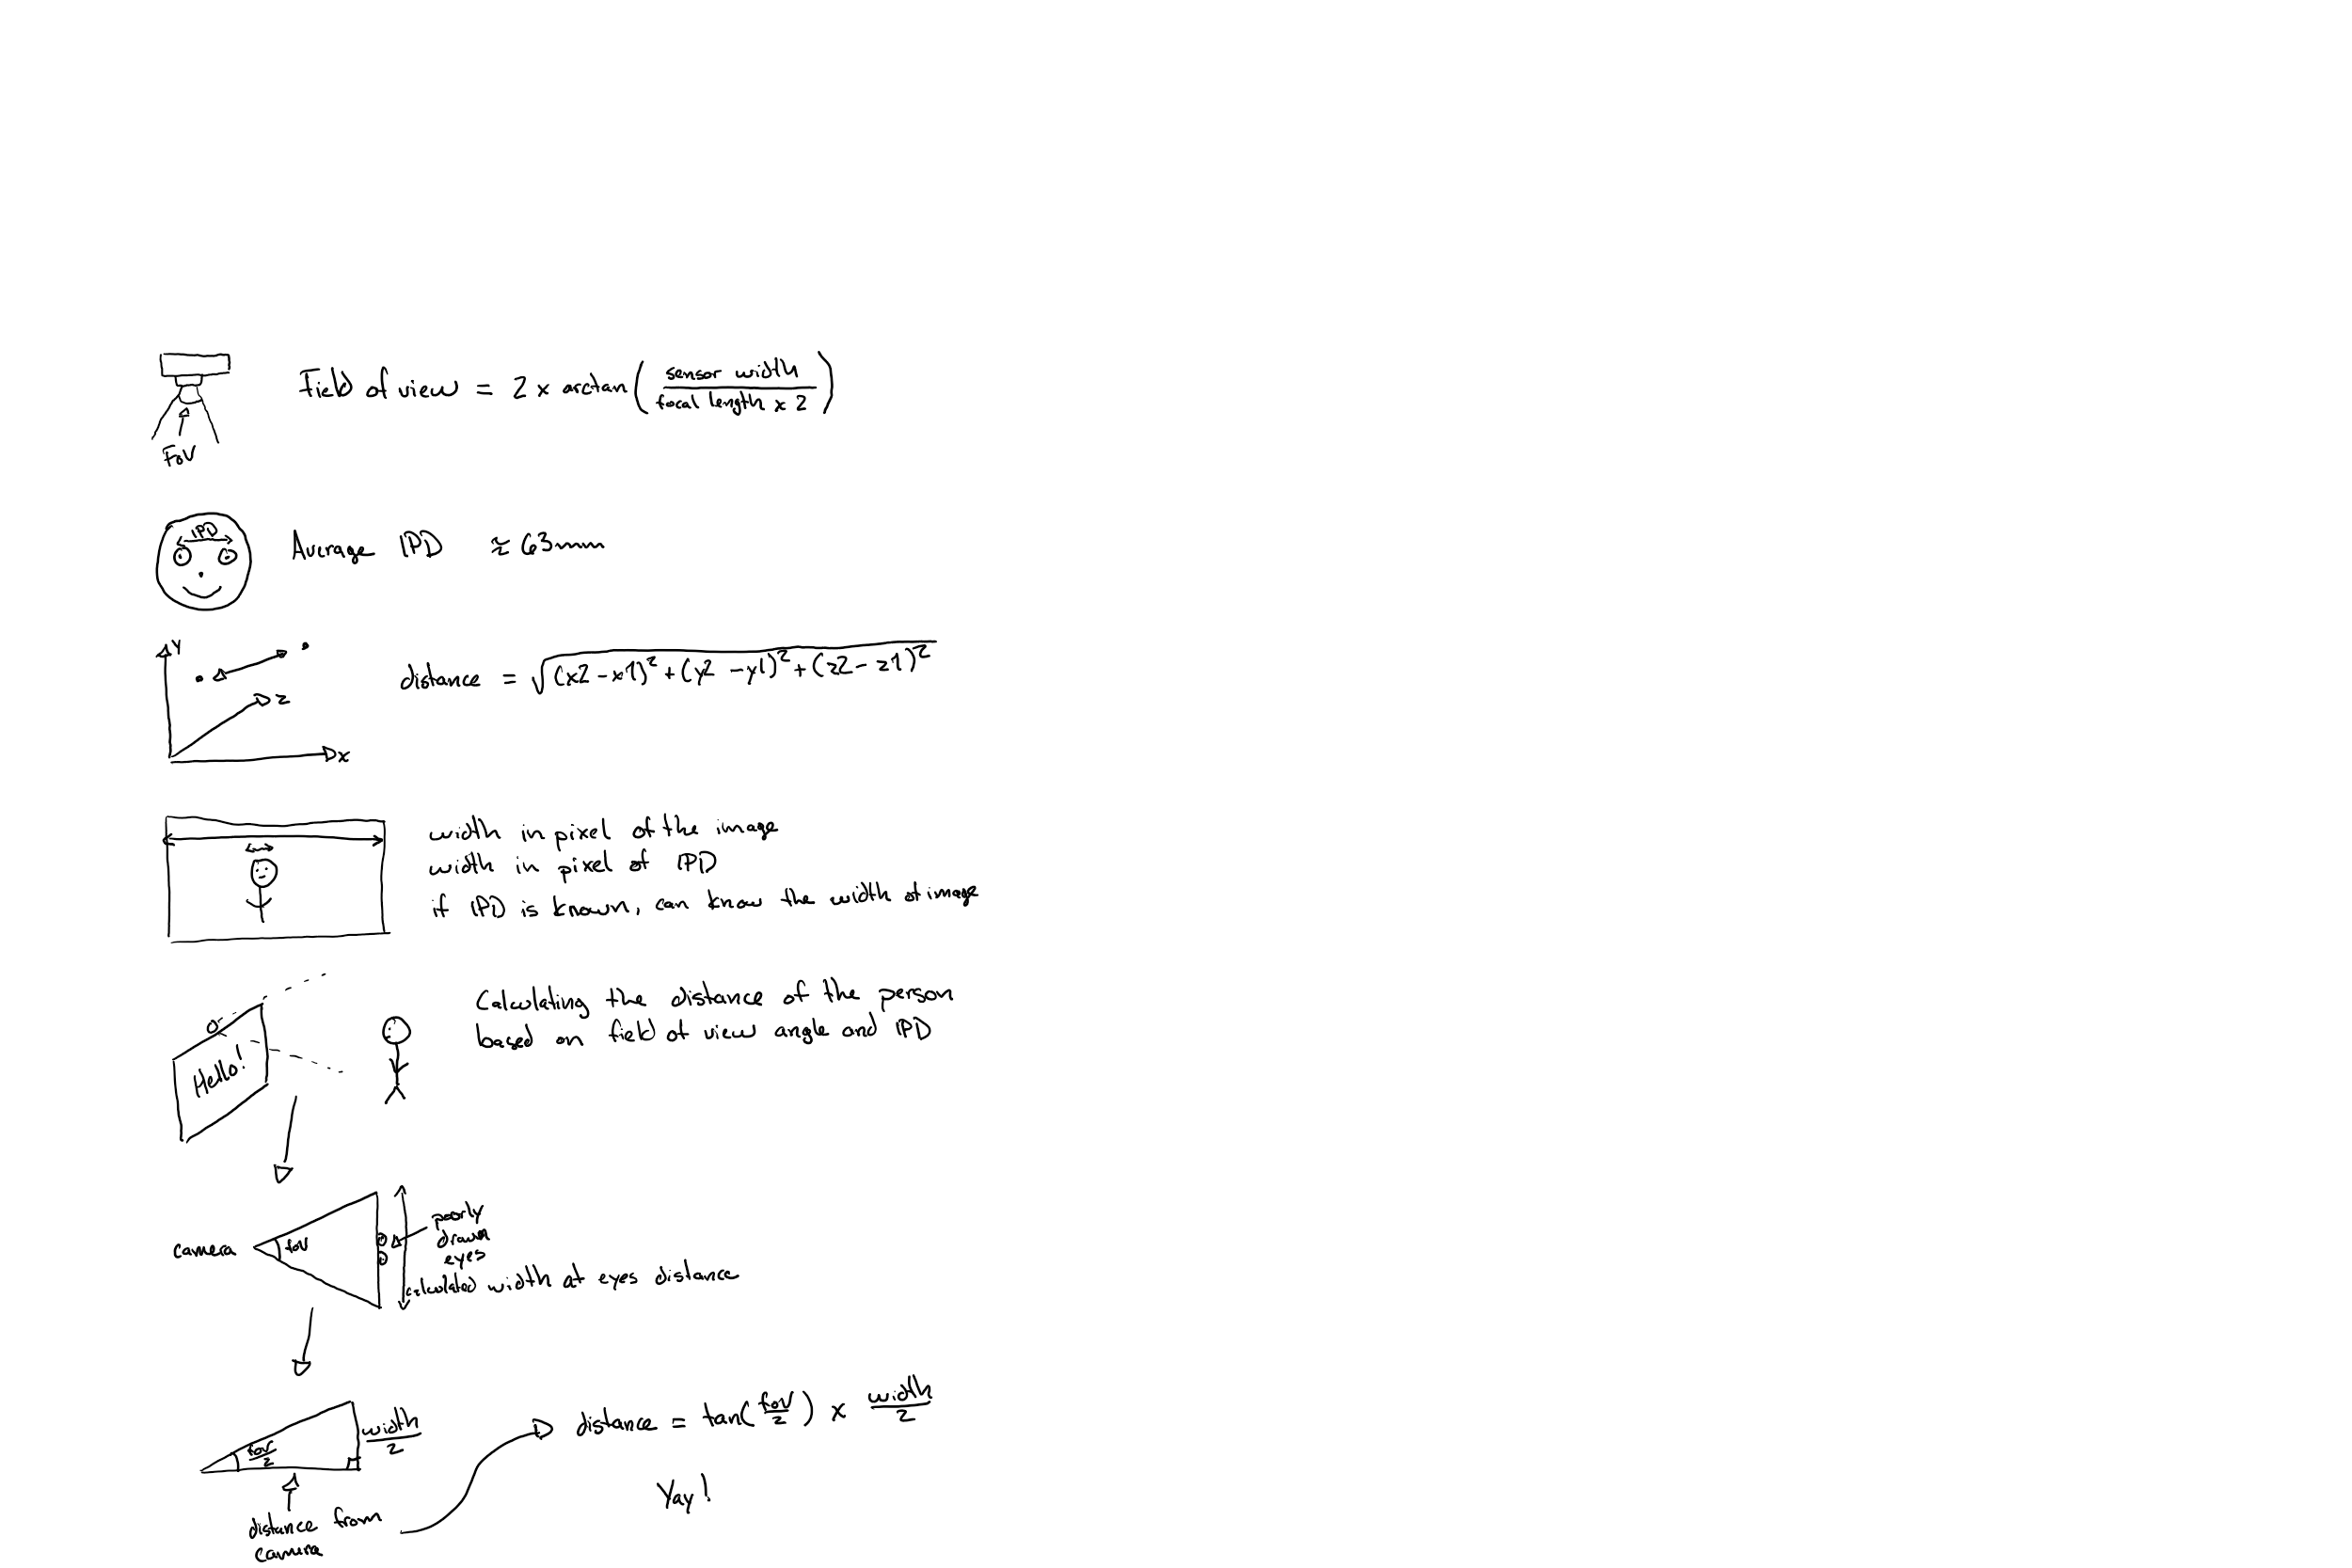 Field of view = 2 x arctan(sensor width / focal length x 2)
FoV
IPD
Average IPD ≈ 63mm
Y
z
x
distance = √(x2 - x1)² + (y2 - y1)² + (z2 - z1)²
width in pixel of the image
width in pixel of IPD
if IPD is known, can know the width of image
Calculating the distance of the person
based on field of view angle and IPD
Hello!
camera
fov
poorly
drawn
eyes
calculated width at eyes distance
fov/2
width/2
distance = tan(fov/2) x width/2
Yay!
distance from
camera